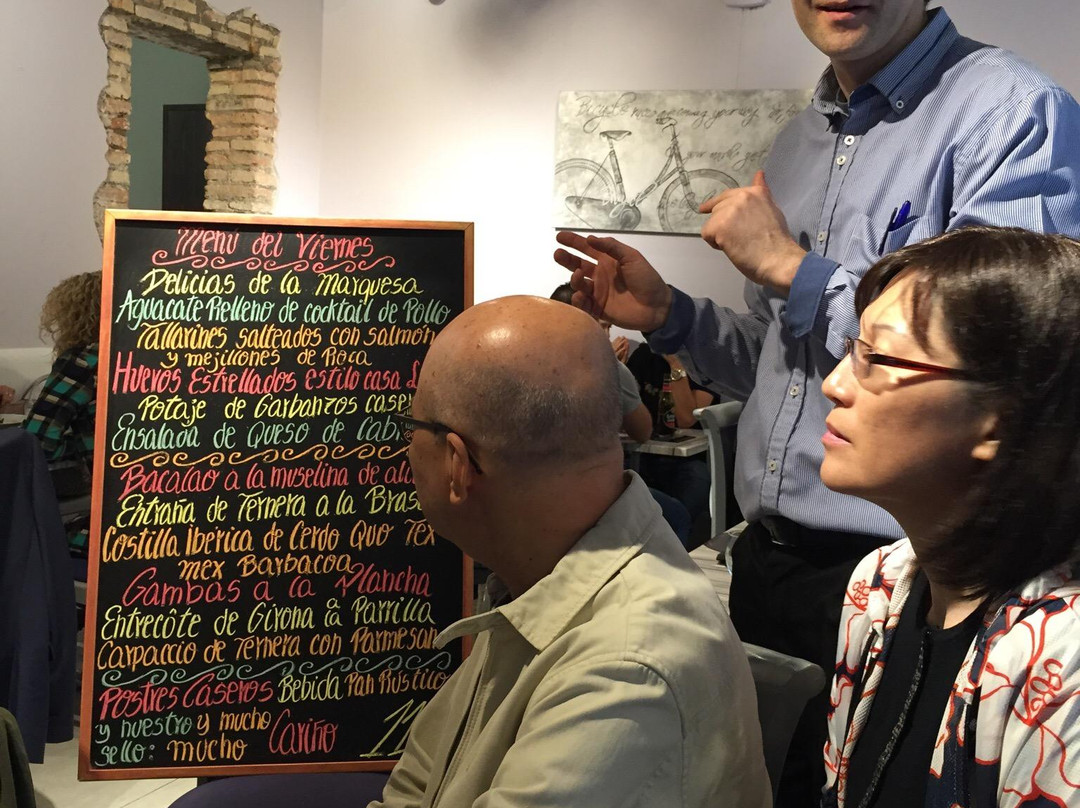 Menú del Viernes
Delicias de la Marquesa
Aguacate Relleno de cocktail de Pollo
Tallarines salteados con salmón
y mejillones de Roca
Huevos Estrellados estilo casa
Potaje de Garbanzos
Ensalada de Queso de
Bacalao a la muselina de
Entraña de Ternera a la
Costilla iberica de Cerdo Quo Tex
mex Barbacoa
Gambas a la Plancha
Entrecôte de Girona a Parrilla
Carpaccio de Ternera con Parmesan
Postres Caseros Bebida Pan Rústico
y nuestro y mucho
sello: mucho Cariño
Bicycle